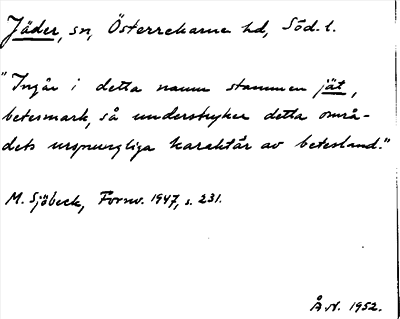 Jäder, sn, Österrekarne hd, Söd. l.
"Ingår i detta namn stammen jät,
betesmark, så understryker detta områ-
dets ursprungliga karaktär av betesland."
M. Sjöbeck, Fornv. 1947, s. 231.
Å.N. 1952.